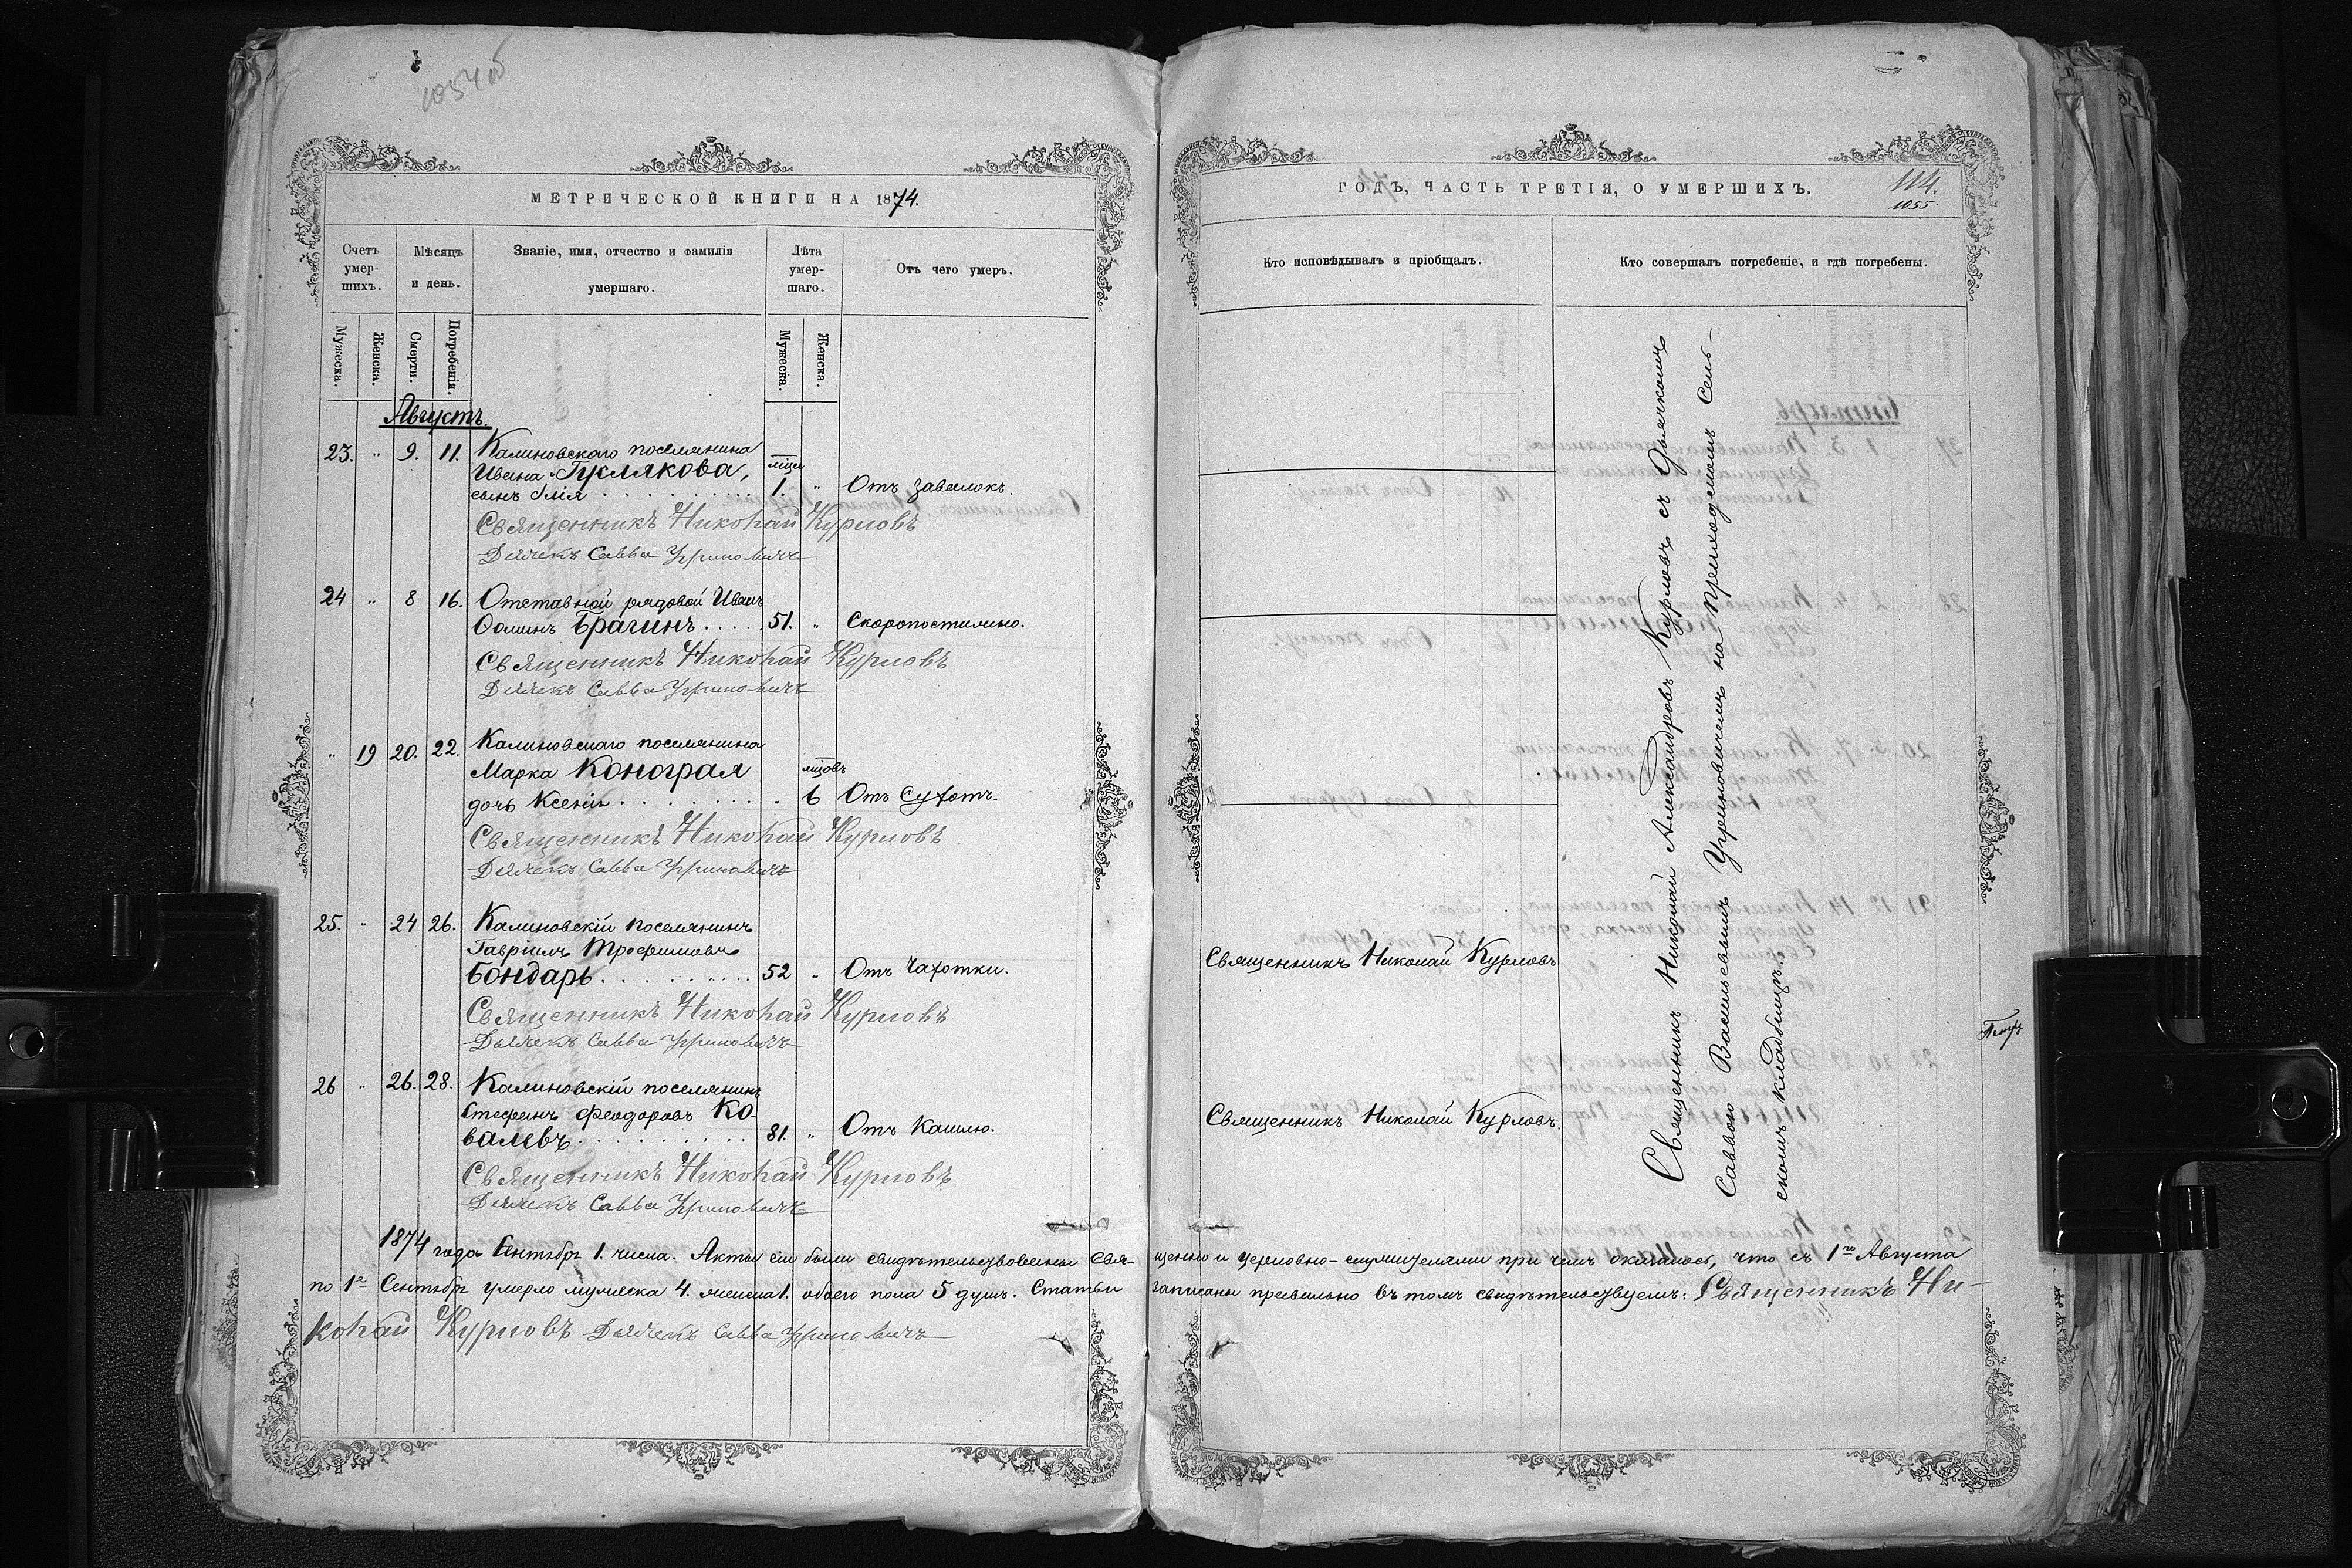 1054 об
МЕТРИЧЕСКОЙ КНИГИ НА 1874.
Счетъ умер-шихъ.
Мѣсяцъ и день.
Званіе, имя, отчество и фамилія умершаго.
Лѣта умер-шаго.
Отъ чего умеръ.
Мужеска.
Женска.
Смерти.
Погребенія.
Мужеска.
Женска.
Августъ.
23. " 9. 11. Калиновскаго поселянина
Ивана
сынъ Илія 1. " Отъ завалокъ.
Священникъ Николай Курловъ
Дьячекъ Савва Уриновичъ
24 " 8 16. Отставной рядовой Иванъ
Фоминъ Брагинъ 51. " Скоропостижно.
Священникъ Николай Курловъ
Дьячекъ Савва Уриновичъ
" 19 20. 22. Калиновскаго поселянина
Марка Конограя мцовъ
дочь Ксенія 6 Отъ Сухотъ.
Священникъ Николай Курловъ
Дьячекъ Савва Уриновичъ
25. " 24 26. Калиновскій поселянинъ
Гавріилъ Трофимовъ
Бондарь 52 " Отъ Чахотки.
Священникъ Николай Курловъ
Дьячекъ Савва Уриновичъ
26 " 26. 28. Калиновскій поселянинъ
Стефанъ Феодоровъ Ко-
валевъ 81. " Отъ Кашлю.
Священникъ Николай Курловъ
Дьячекъ Савва Уриновичъ
ГОДЪ, ЧАСТЬ ТРЕТІЯ, О УМЕРШИХЪ.
114.
1055
Кто исповѣдывалъ и пріобщалъ.
Кто совершалъ погребеніе, и гдѣ погребены.
Священникъ Николай Курловъ
Священникъ Николай Курловъ.
Священникъ Николай Александровъ Курловъ съ Дьячкомъ
Саввою Васильевымъ Уриновичемъ на Приходскомъ Сель-
скомъ кладбищѣ.
1874 года Сентябр 1. числа. Акты сіи были свидѣтельствованы свя-щенно и церковно-служителями при чемъ оказалось, что съ 1го Августа
по 1е Сентябр умерло мужеска 4. женска 1. обоего пола 5 душъ. Статьи записаны правильно въ томъ свидѣтельствуемъ: Священникъ Ни-
колай Курловъ Дьячекъ Савва Уриновичъ